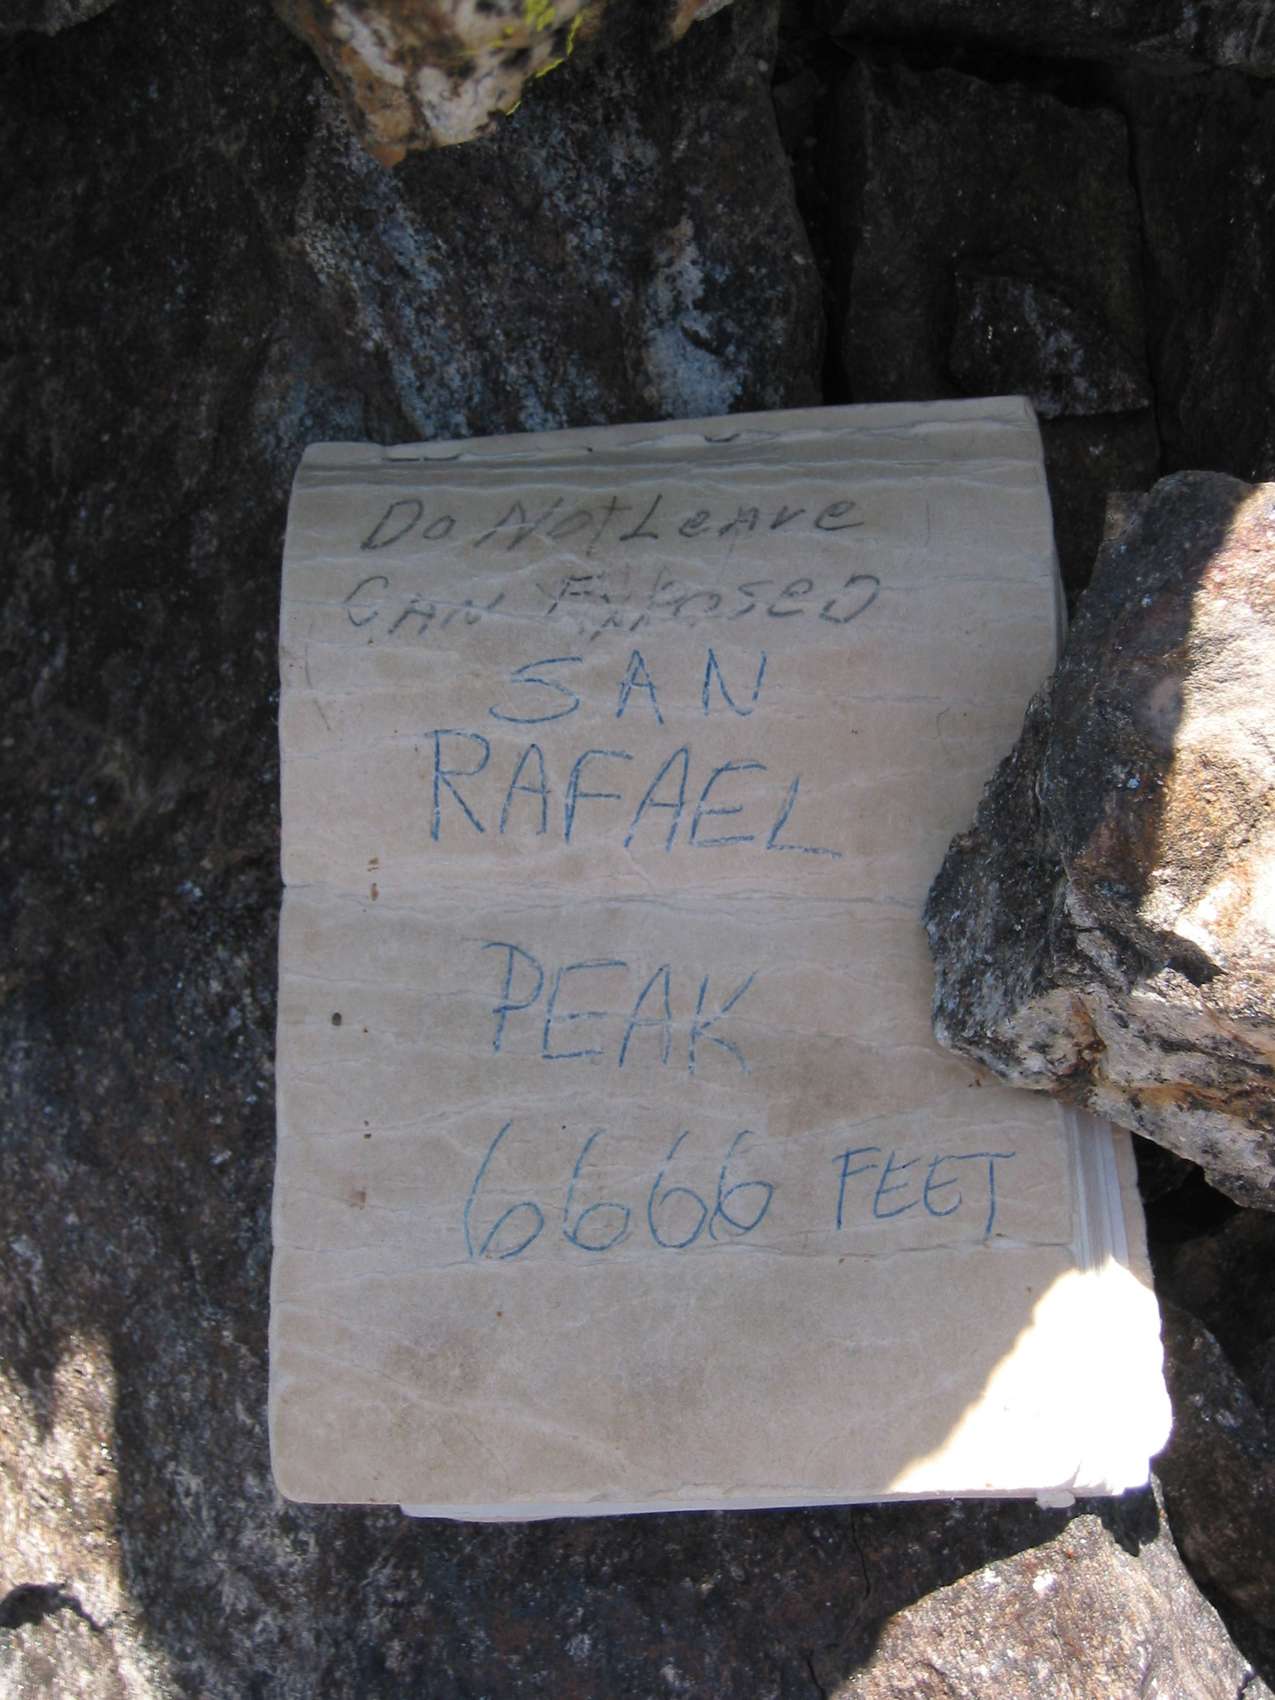 Do Not Leave
CAN ExposeD
SAN
RAFAEL
PEAK
6666 FEET